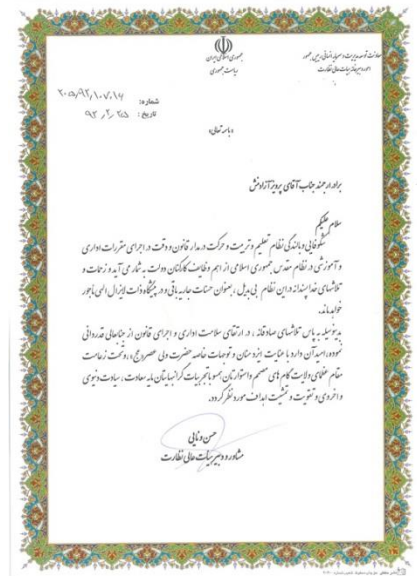 جمهوری اسلامی ایران
ریاست جمهوری
معاونت توسعه مدیریت و سرمایه انسانی رئیس جمهور
امور دبیرخانه هیات عالی نظارت
شماره: ۲۰۵/۹۲/۱۰۷۰۱۷
تاریخ: ۹۲/۲/۲۵
«باسمه تعالی»
برادر ارجمند جناب آقای پرویز آزادمنش
سلام علیکم
شکوفایی و بالندگی نظام تعلیم و تربیت و حرکت در مدار قانون و دقت در اجرای مقررات اداری
و آموزشی در نظام مقدس جمهوری اسلامی از اهم وظایف کارکنان دولت به شمار می آید و زحمات و
تلاشهای خداپسندانه در این نظام بی بدیل، بعنوان حسنات جاریه باقی و در پیشگاه ذات لایزال الهی مأجور
خواهد ماند.
بدینوسیله به پاس تلاشهای صادقانه، در ارتقای سلامت اداری و اجرای قانون از جنابعالی قدردانی
نموده، امید آن دارد با عنایت ایزد منان و توجهات خاصه حضرت ولی عصر «عج»، و تحت زعامت
مقام عظمای ولایت گام های مصمم و استوارتان همسو با تجربیات گرانبهایتان مایه سعادت، سیادت دنیوی
و اخروی و تقویت و تثبیت اهداف مورد نظر گردد.
حسن ونایی
مشاور و دبیر هیات عالی نظارت